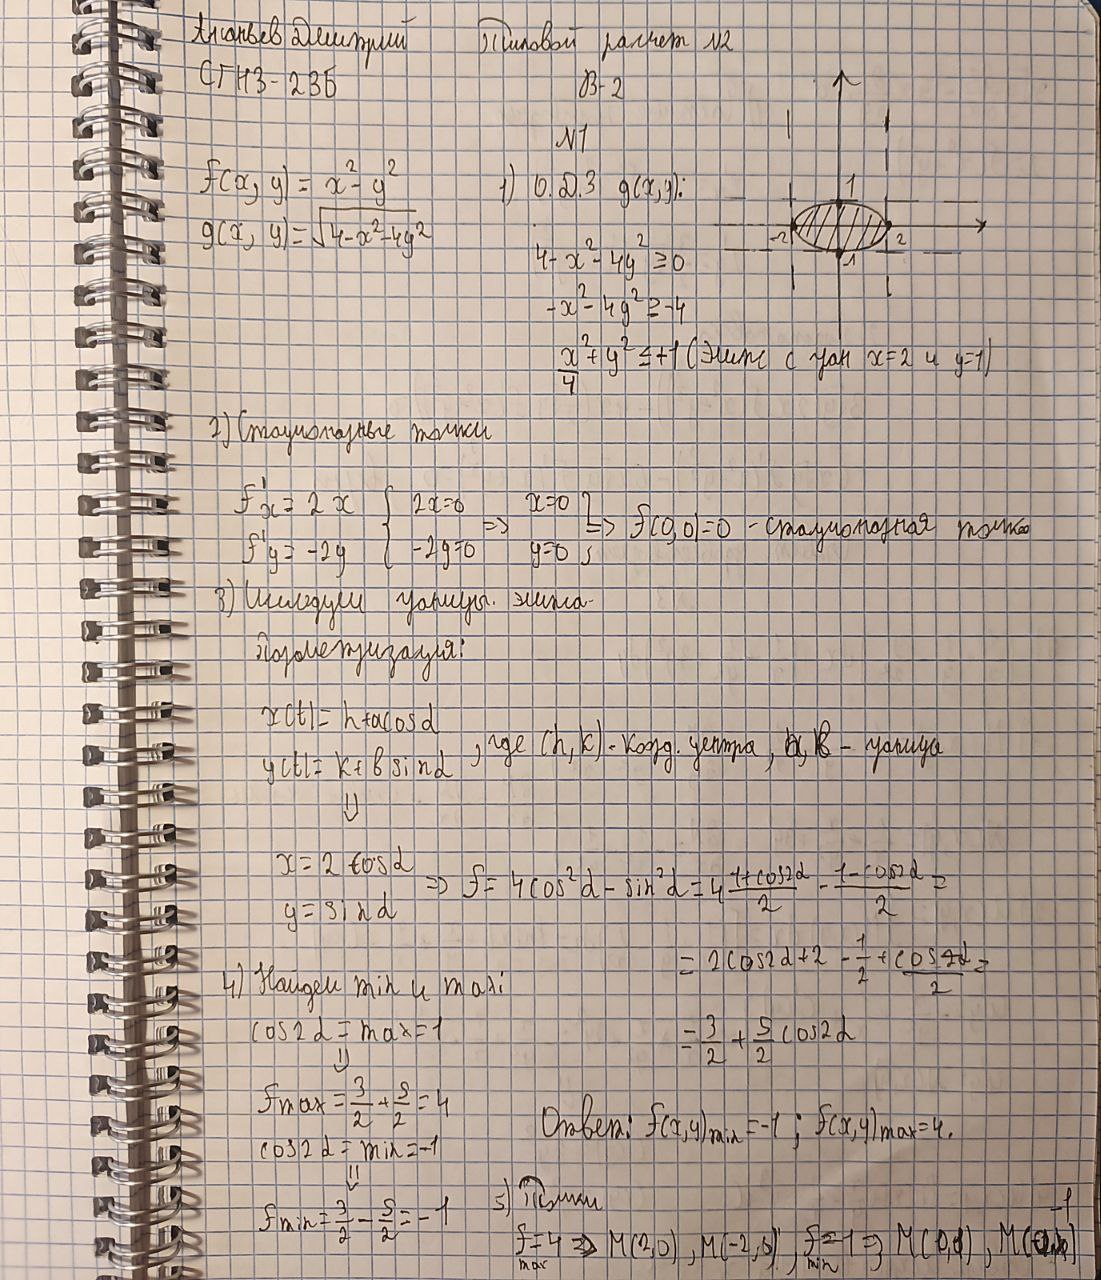 Ананьев Дмитрий Типовой расчет №2
СГН3-23Б В-2
№1
f(x, y) = x² - y²
g(x, y) = √(4-x²-4y²)
1) О.Д.З g(x,y):
4-x²-4y² ≥ 0
-x²-4y² ≥ -4
x²/4 + y² ≤ +1 (Эллипс с гран x=2 и y=1)
1
-2 2
-1
2) Стационарные точки
f'x = 2x { 2x=0 => x=0 } => f(0,0)=0 - стационарная точка
f'y = -2y { -2y=0 y=0 }
3) Исследуем границы эллипса.
Параметризация:
x(t) = h+acosα
y(t) = k+b sinα , где (h,k) - коорд. центра, a, b - границы
⇓
x = 2 cosα
y = sinα => f = 4cos²α - sin²α = 4 (1+cos2α)/2 - (1-cos2α)/2 =
= 2cos2α+2 - 1/2 + cos2α/2 =
= 3/2 + 5/2 cos2α
4) Найдем min и max:
cos2α = max = 1
⇓
fmax = 3/2 + 5/2 = 4
cos2α = min = -1
⇓
fmin = 3/2 - 5/2 = -1
Ответ: f(x,y)min = -1 ; f(x,y)max = 4.
5) Точки
fmax = 4 => M(2,0), M(-2,0), fmin = -1 => M(0,1), M(0,-1)